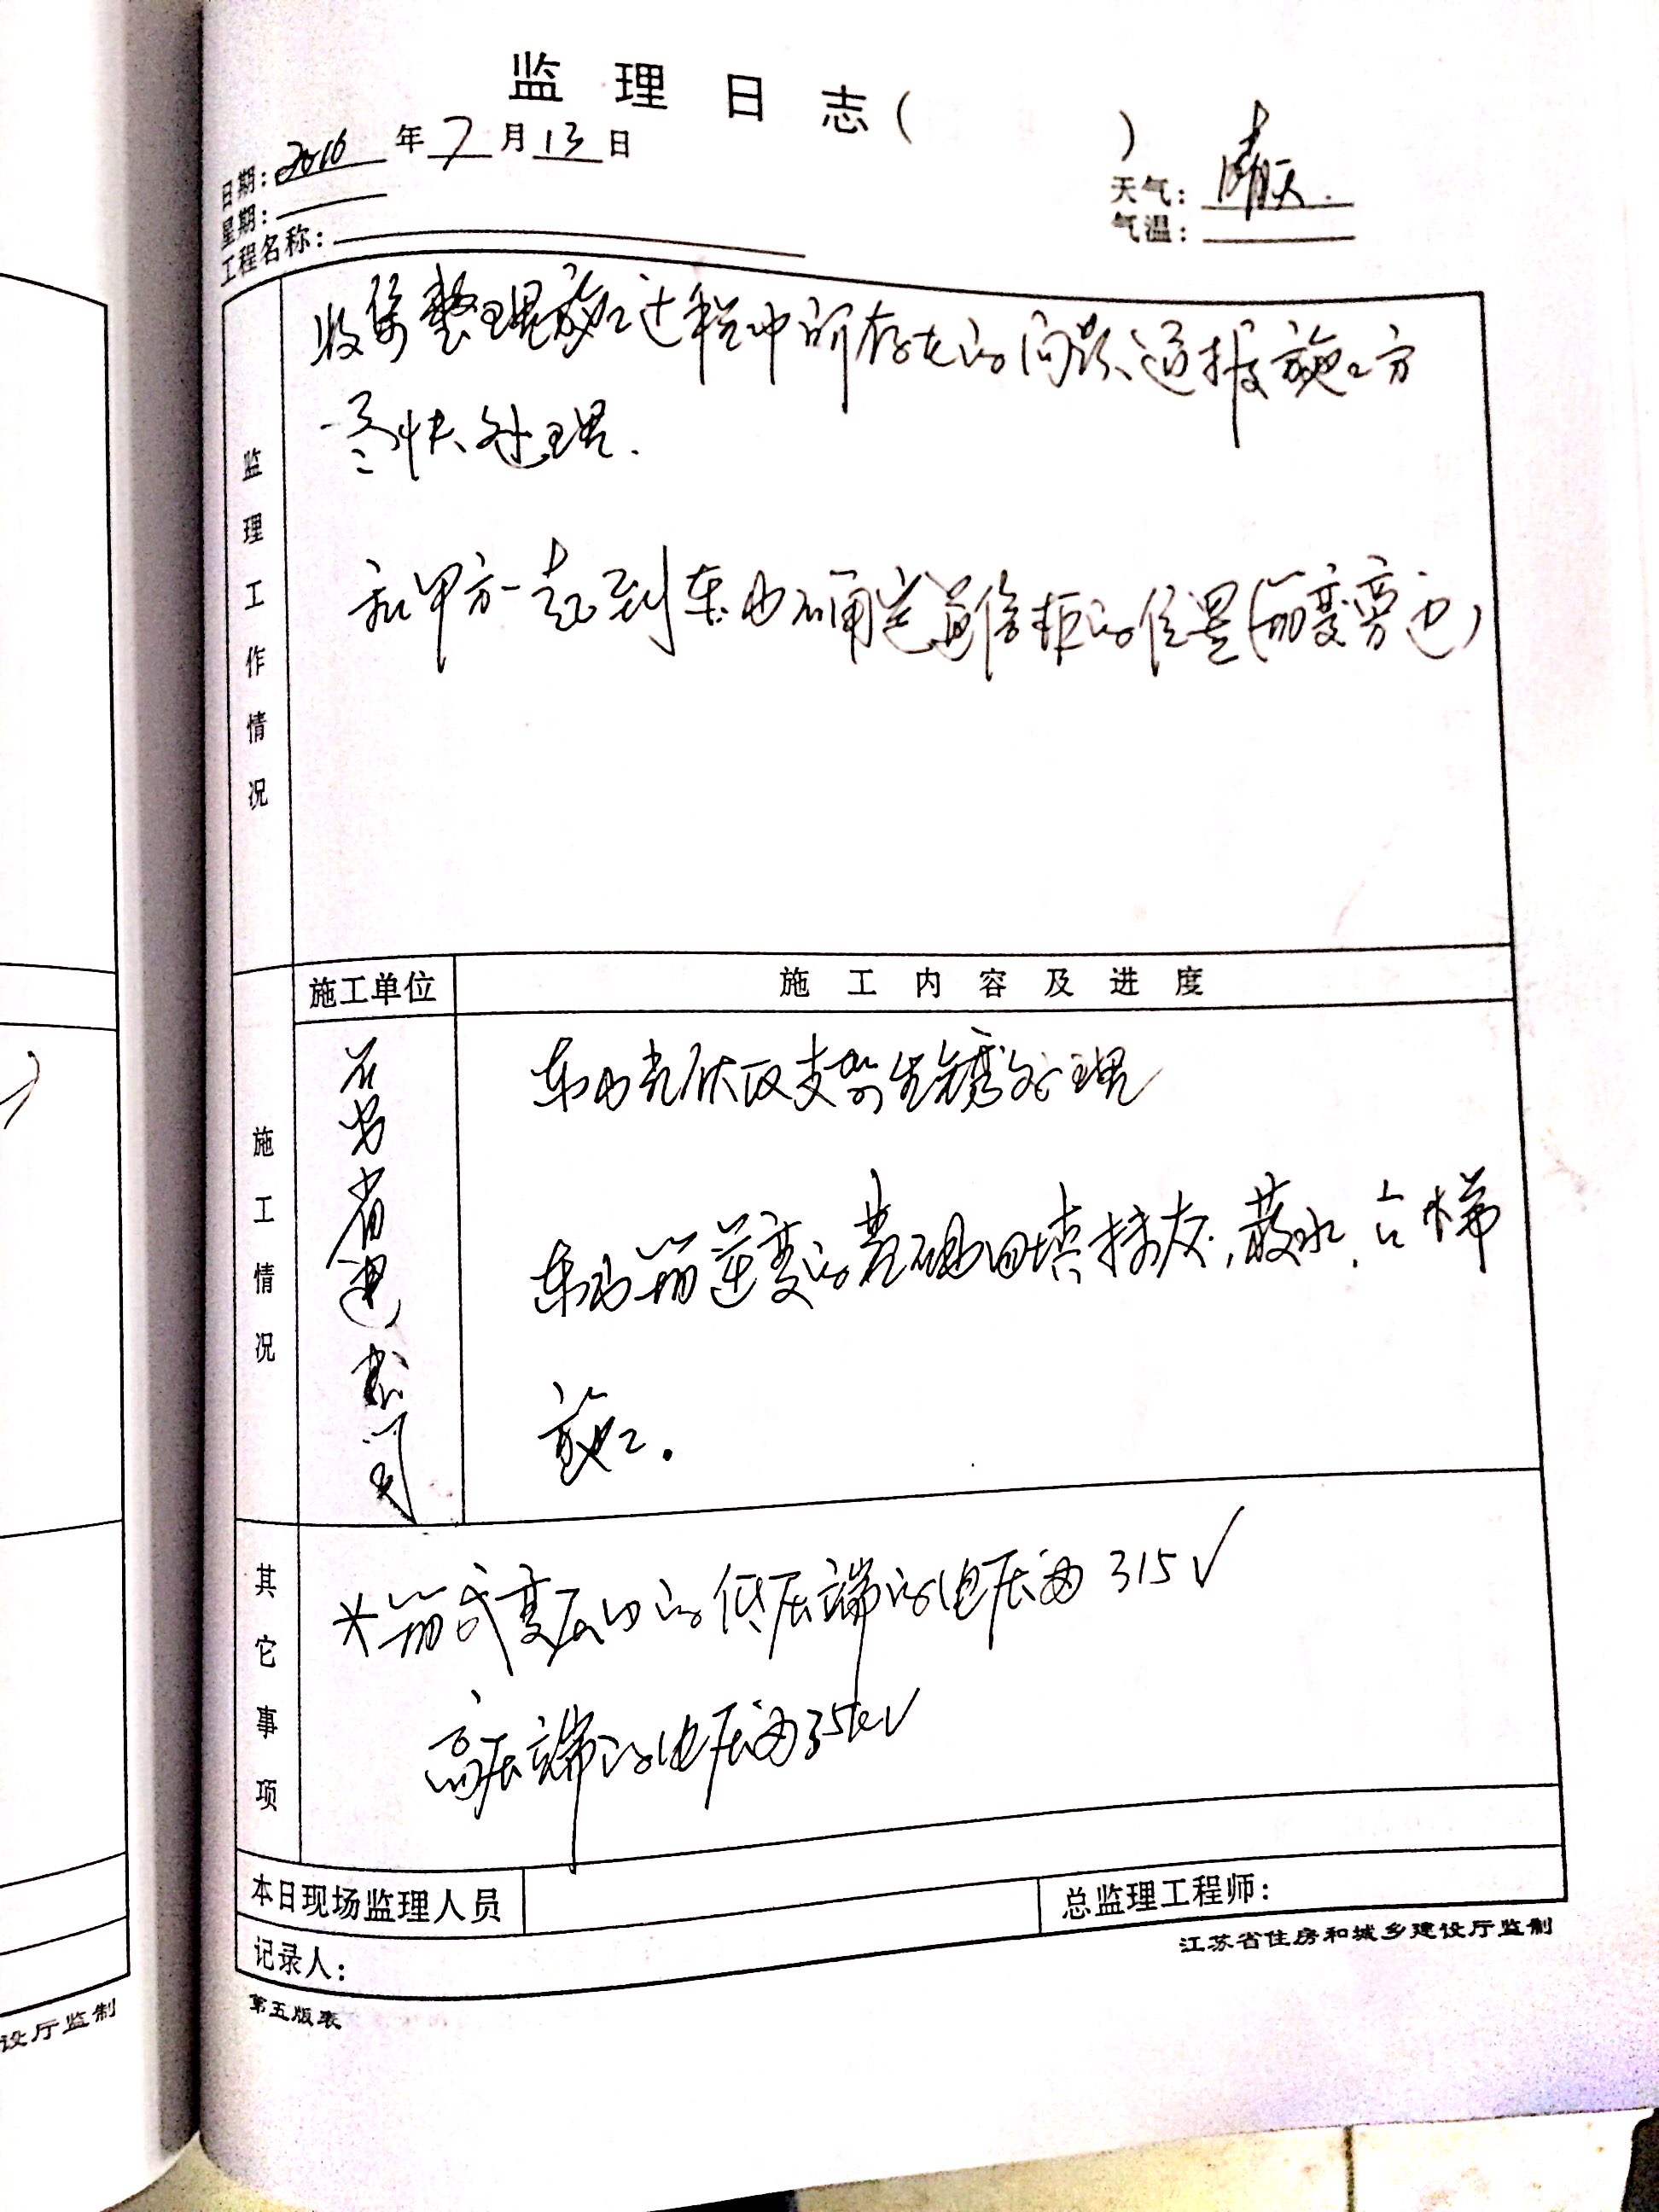 监理日志（ ）
日期：2016年7月13日
天气：晴天.
星期：
气温：
工程名称：
监理工作情况
收集整理施工过程中所存在的问题通报施工方
尽快处理.
和甲方一起到东山确定通信柜的位置(箱变旁边)
施工情况
施工单位
施工内容及进度
省建公司
东山光伏区支架生锈处理
东山箱逆变的基础回填抹灰,散水,台梯
施工.
其它事项
*箱式变压器的低压端的电压为315V
高压端的电压为35kV
本日现场监理人员
总监理工程师：
记录人：
江苏省住房和城乡建设厅监制
第五版表
设厅监制